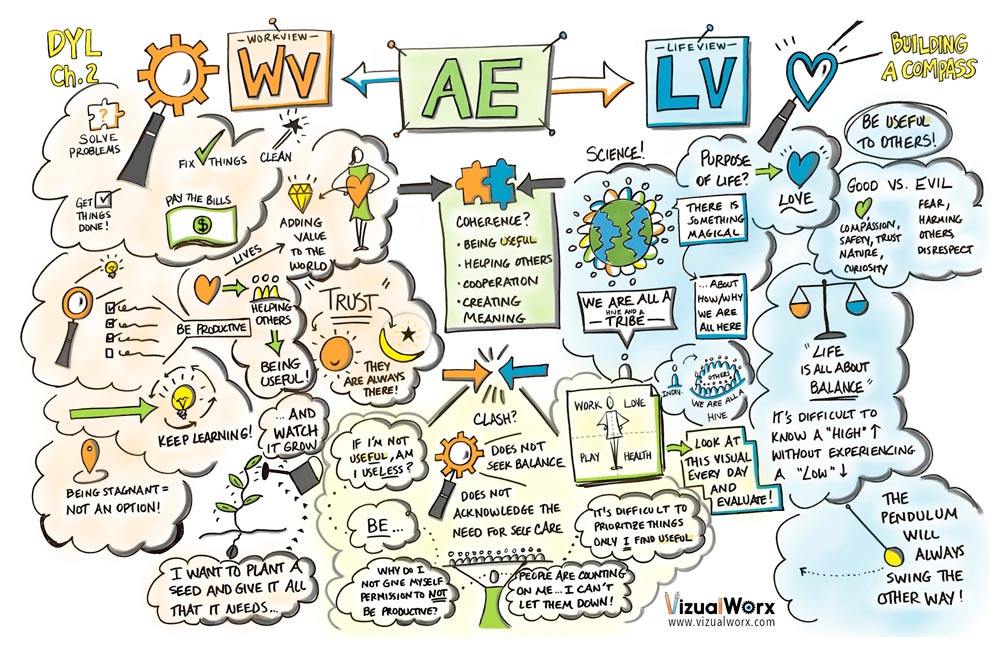 DYL
Ch.2
-WORKVIEW-
WV
AE
-LIFEVIEW-
LV
BUILDING
A COMPASS
?
SOLVE
PROBLEMS
FIX THINGS
CLEAN
GET
THINGS
DONE!
PAY THE BILLS
$
ADDING
VALUE
TO THE
WORLD
LIVES
BE PRODUCTIVE
HELPING
OTHERS
BEING
USEFUL!
"TRUST"
THEY
ARE ALWAYS
THERE!
KEEP LEARNING!
... AND
WATCH
IT GROW
BEING STAGNANT =
NOT AN OPTION!
I WANT TO PLANT A
SEED AND GIVE IT ALL
THAT IT NEEDS...
COHERENCE?
• BEING USEFUL
• HELPING OTHERS
• COOPERATION
• CREATING
MEANING
CLASH?
DOES NOT
SEEK BALANCE
DOES NOT
ACKNOWLEDGE THE
NEED FOR SELF CARE
IF I'M NOT
USEFUL, AM
I USELESS?
BE...
WHY DO I
NOT GIVE MYSELF
PERMISSION TO NOT
BE PRODUCTIVE?
PEOPLE ARE COUNTING
ON ME... I CAN'T
LET THEM DOWN!
IT'S DIFFICULT TO
PRIORITIZE THINGS
ONLY I FIND USEFUL
SCIENCE!
WE ARE ALL A
HIVE AND A
-TRIBE-
PURPOSE
OF LIFE?
LOVE
THERE IS
SOMETHING
MAGICAL
...ABOUT
HOW/WHY
WE ARE
ALL HERE
INDIV.
OTHERS
WE ARE ALL A
HIVE
WORK
LOVE
PLAY
HEALTH
LOOK AT
THIS VISUAL
EVERY DAY
AND
EVALUATE!
BE USEFUL
TO OTHERS!
GOOD VS. EVIL
COMPASSION,
SAFETY, TRUST
NATURE,
CURIOSITY
FEAR,
HARMING
OTHERS
DISRESPECT
"LIFE
IS ALL ABOUT
BALANCE"
IT'S DIFFICULT TO
KNOW A "HIGH" ↑
WITHOUT EXPERIENCING
A "LOW" ↓
THE
PENDULUM
WILL
ALWAYS
SWING THE
OTHER WAY!
VizualWorx
www.vizualworx.com